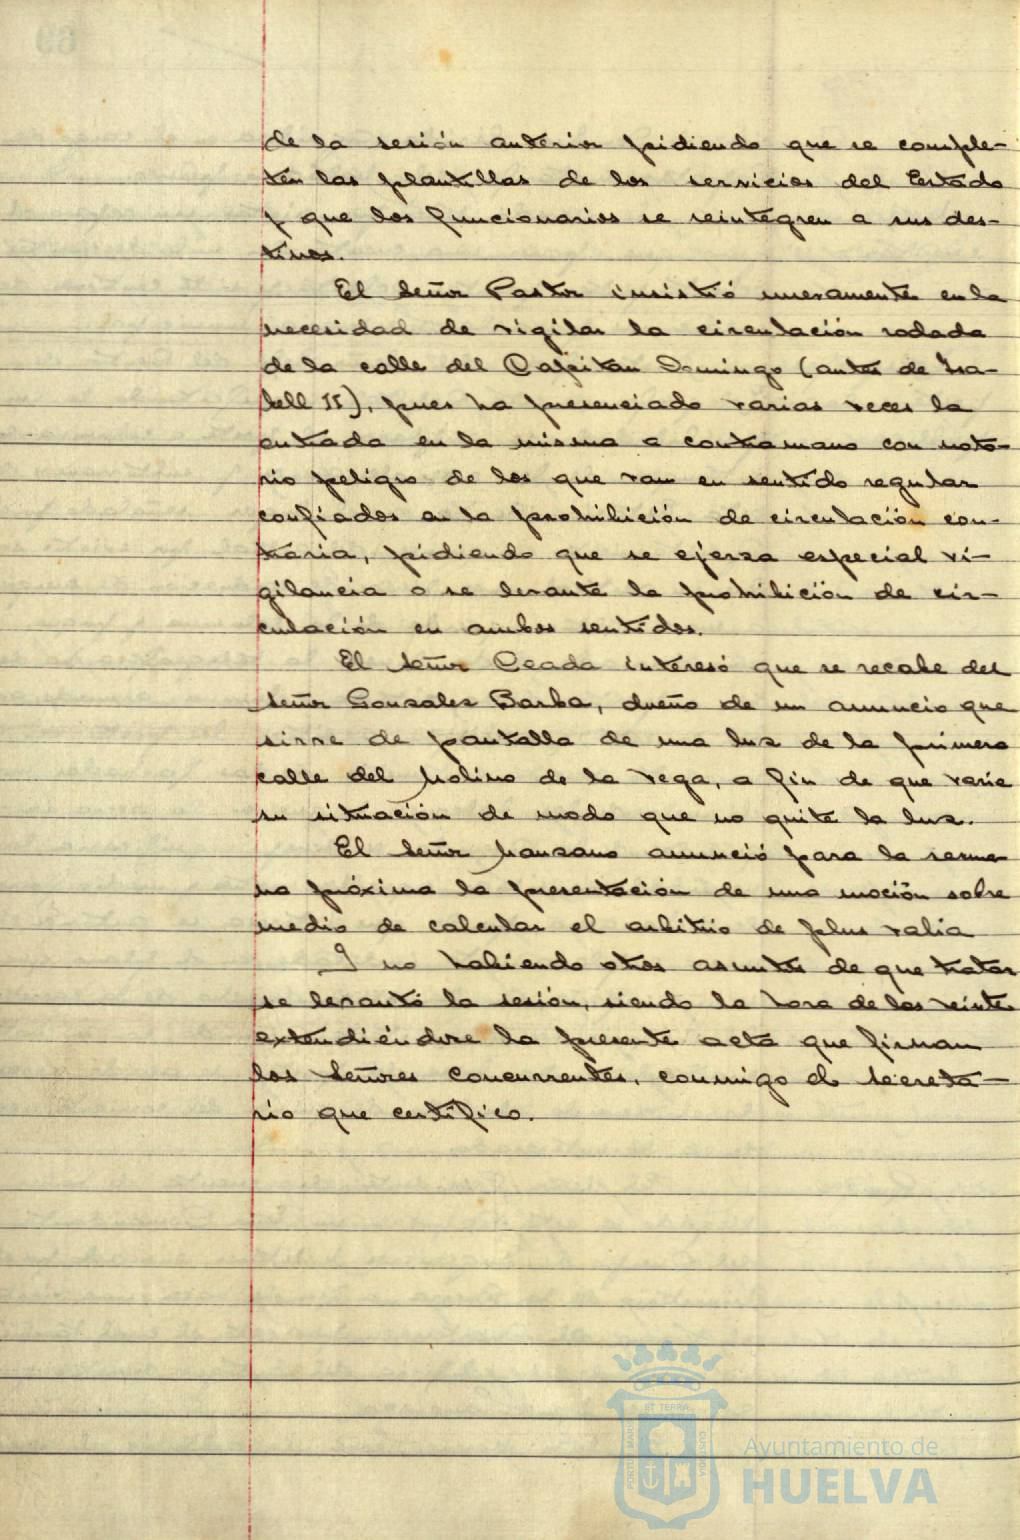 de la sesión anterior pidiendo que se comple-
ten las plantillas de los servicios del Estado
y que los funcionarios se reintegren a sus des-
tinos.
El Señor Pastor insistió nuevamente en la
necesidad de vigilar la circulación rodada
de la calle del Capitan Domingo (antes de Isa-
bell II), pues ha presenciado varias veces la
entrada en la misma a contramano con noto-
rio peligro de los que van en sentido regular
confiados en la prohibición de circulación con-
traria, pidiendo que se ejerza especial vi-
gilancia o se levante la prohibición de cir-
culación en ambos sentidos.
El Señor Ceada interesó que se recabe del
Señor Gonzalez Barba, dueño de un anuncio que
sirve de pantalla de una luz de la primera
calle del Molino de la Vega, a fin de que varie
su situación de modo que no quite la luz.
El Señor Manzano anunció para la sema-
na próxima la presentación de una moción sobre
medio de calcular el arbitrio de plus valia
Y no habiendo otros asuntos de que tratar
se levantó la sesión, siendo la hora de las veinte
extendiéndose la presente acta que firman
los Señores concurrentes, conmigo el Secreta-
rio que certifico.
PORTUS MARIS
ET TERRA
CUSTODIA
Ayuntamiento de
HUELVA